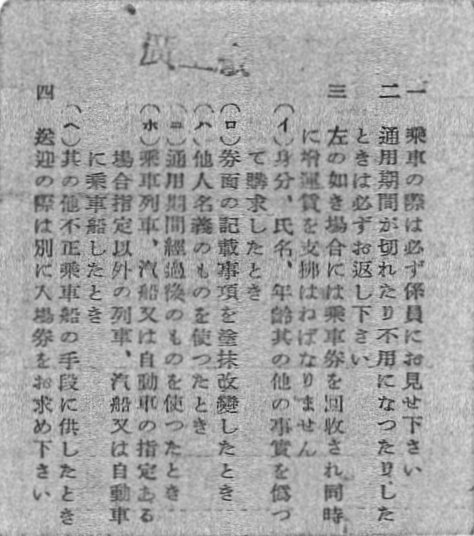 一 乗車の際は必ず係員にお見せ下さい
二 通用期間が切れたり不用になつたりした
ときは必ずお返し下さい
三 左の如き場合には乗車券を回收され同時
に増運賃を支拂はねばなりません
(イ)身分、氏名、年齢其の他の事實を僞つ
て購求したとき
(ロ)券面の記載事項を塗抹改變したとき
(ハ)他人名義のものを使つたとき
(ニ)通用期間經過後のものを使つたとき
(ホ)乗車列車、汽船又は自動車の指定ある
場合指定以外の列車、汽船又は自動車
に乗車船したとき
(ヘ)其の他不正乗車船の手段に供したとき
四 送迎の際は別に入場券をお求め下さい